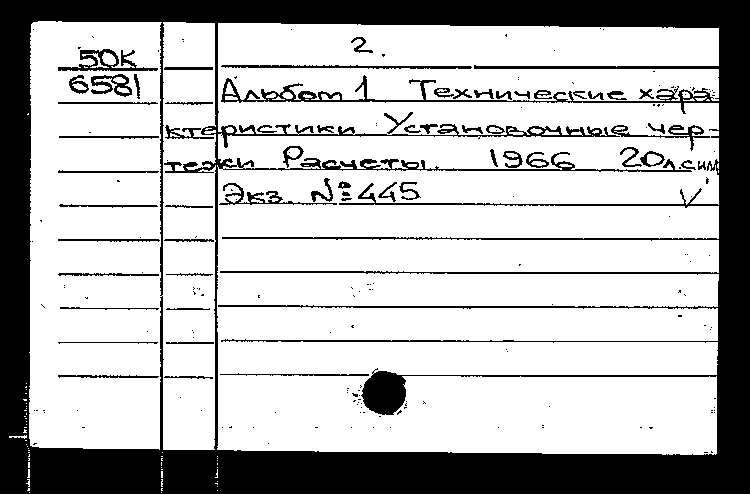 2.
50К
6581
Альбом 1 Технические хара
ктеристики Установочные чер-
тежи Расчеты. 1966 20л.силл
Экз. №445